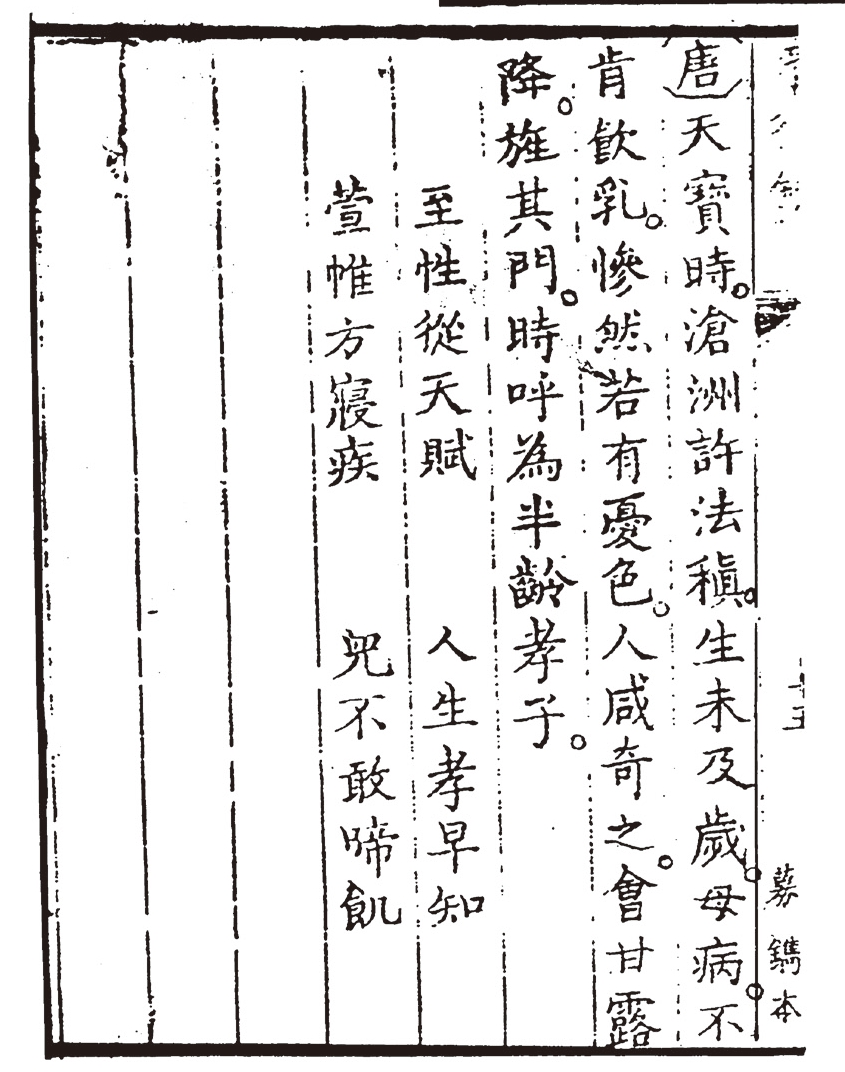 唐天寶時。滄洲許法稹。生未及歲。母病。不
肯飲乳。慘然若有憂色。人咸奇之。會甘露
降。旌其門。時呼為半齡孝子。
至性從天賦　人生孝早知
萱帷方寢疾　兒不敢啼飢
募鐫本